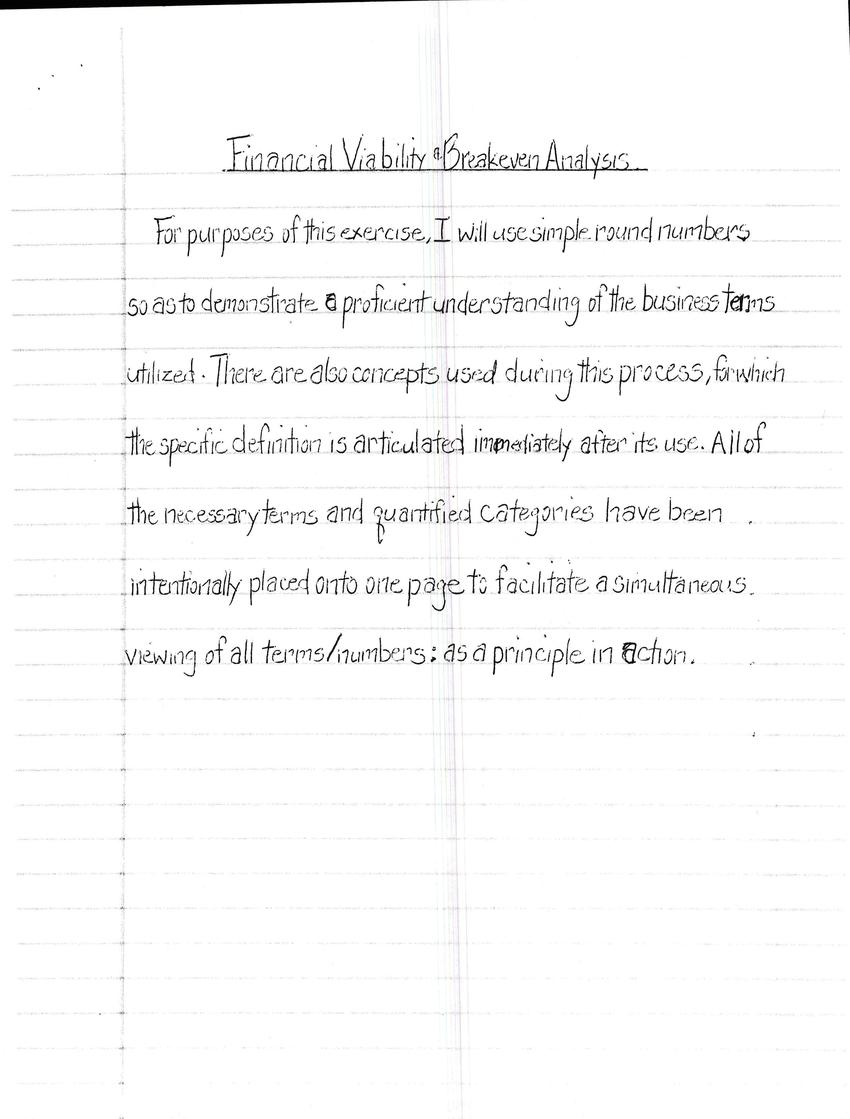 Financial Viability & Breakeven Analysis
For purposes of this exercise, I will use simple round numbers
so as to demonstrate a proficient understanding of the business terms
utilized. There are also concepts used during this process, for which
the specific definition is articulated immediately after its use. All of
the necessary terms and quantified categories have been
intentionally placed onto one page to facilitate a simultaneous
viewing of all terms/numbers: as a principle in action.